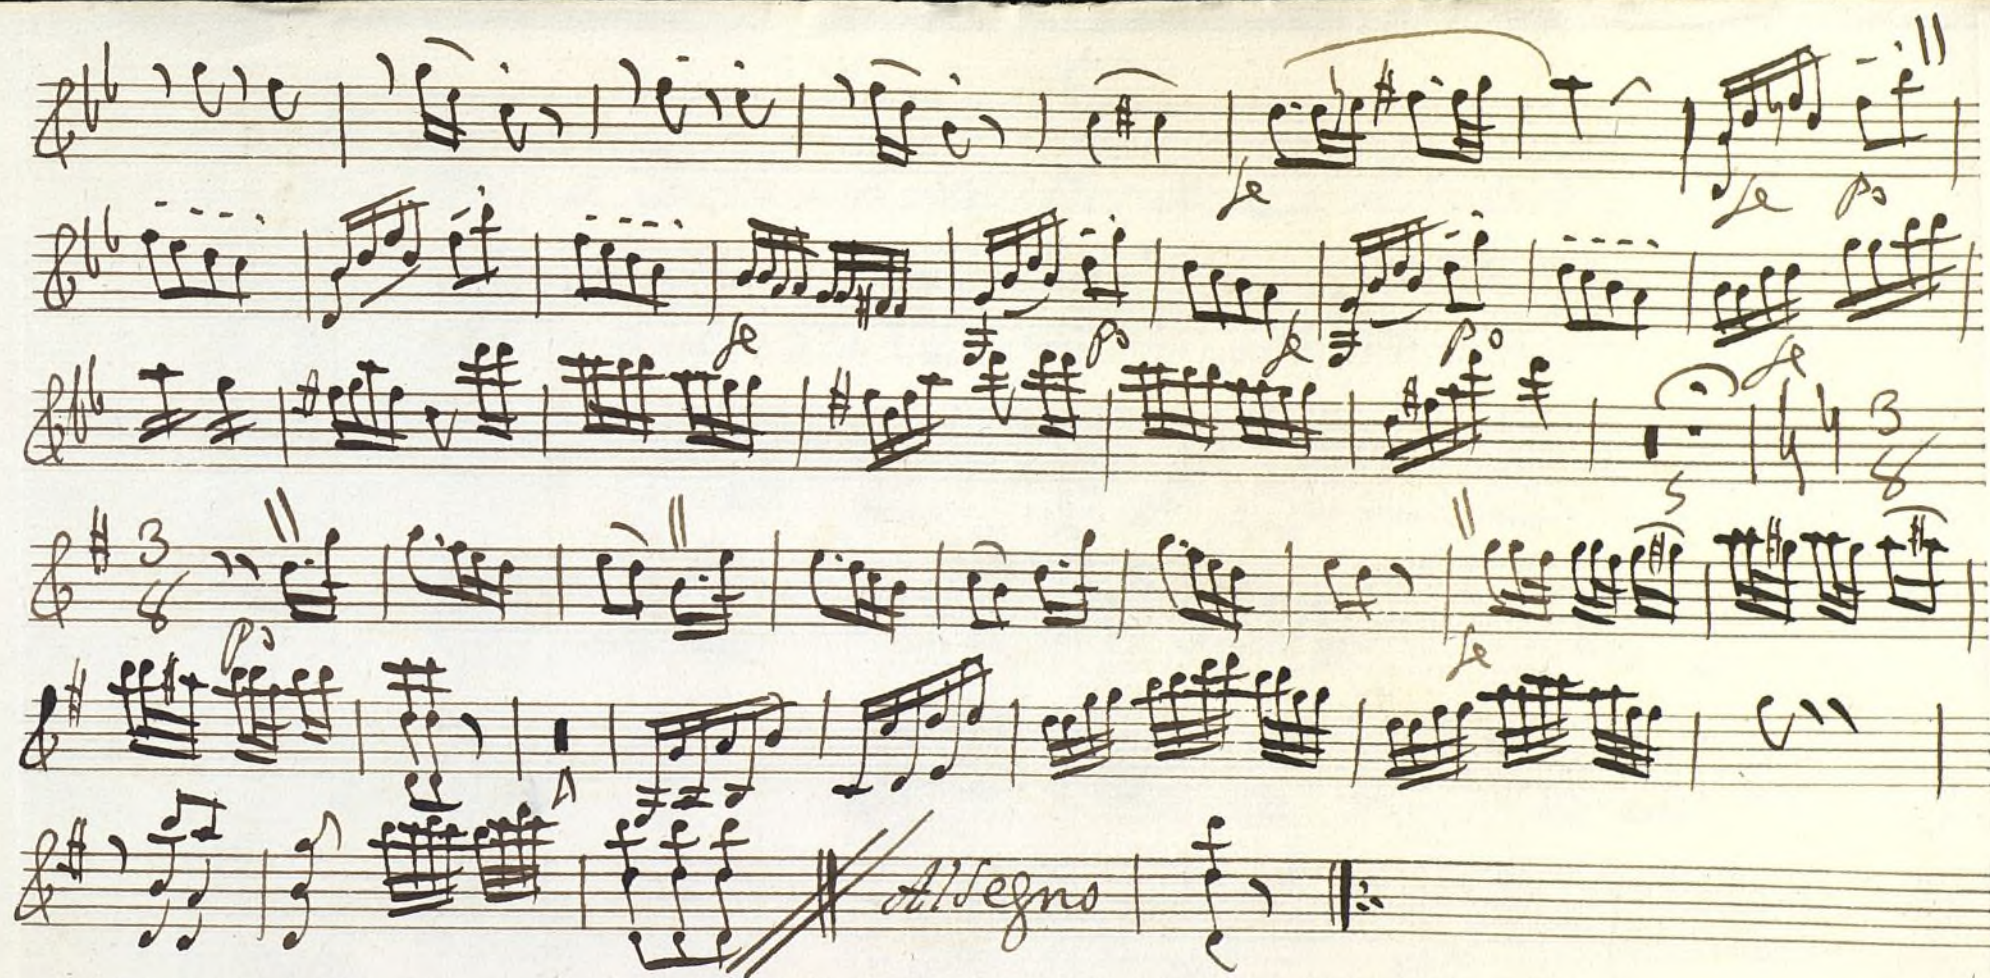 fe fe po
fe po fe po fe
3 8
3 8 po fe
Al Segno